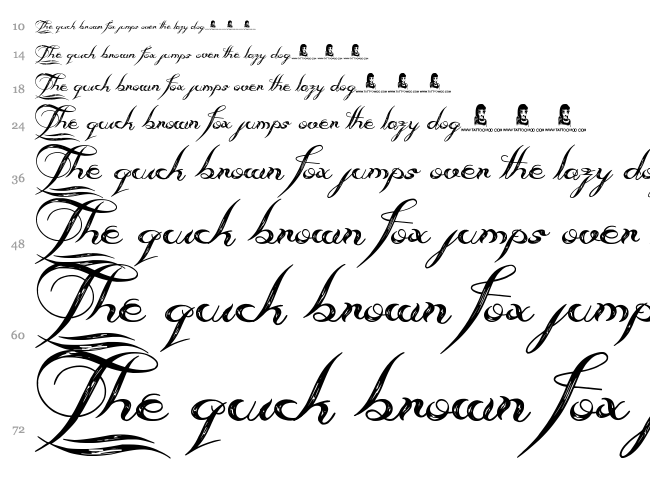 10 The quick brown fox jumps over the lazy dog
14 The quick brown fox jumps over the lazy dog WWW.TATTOOWOO.COM WWW.TATTOOWOO.COM WWW.TATTOOWOO.COM
18 The quick brown fox jumps over the lazy dog WWW.TATTOOWOO.COM WWW.TATTOOWOO.COM WWW.TATTOOWOO.COM
24 The quick brown fox jumps over the lazy dog WWW.TATTOOWOO.COM WWW.TATTOOWOO.COM WWW.TATTOOWOO.COM
36 The quick brown fox jumps over the lazy do
48 The quick brown fox jumps over
60 The quick brown fox jump
72 The quick brown fox j